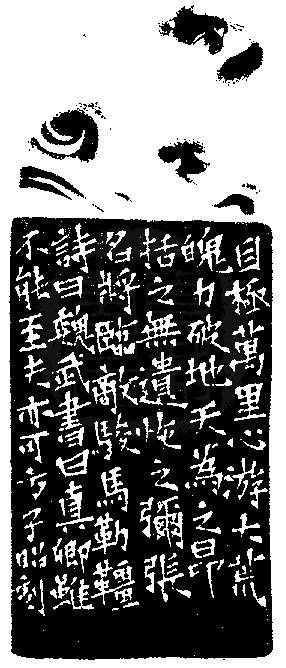 目極萬里心游大荒
魄力破地天為之昂
括之無遺恢之彌張
名將臨敵駿馬勒韁
詩曰魏武書曰真卿雖
不能至夫亦可方子昭刻